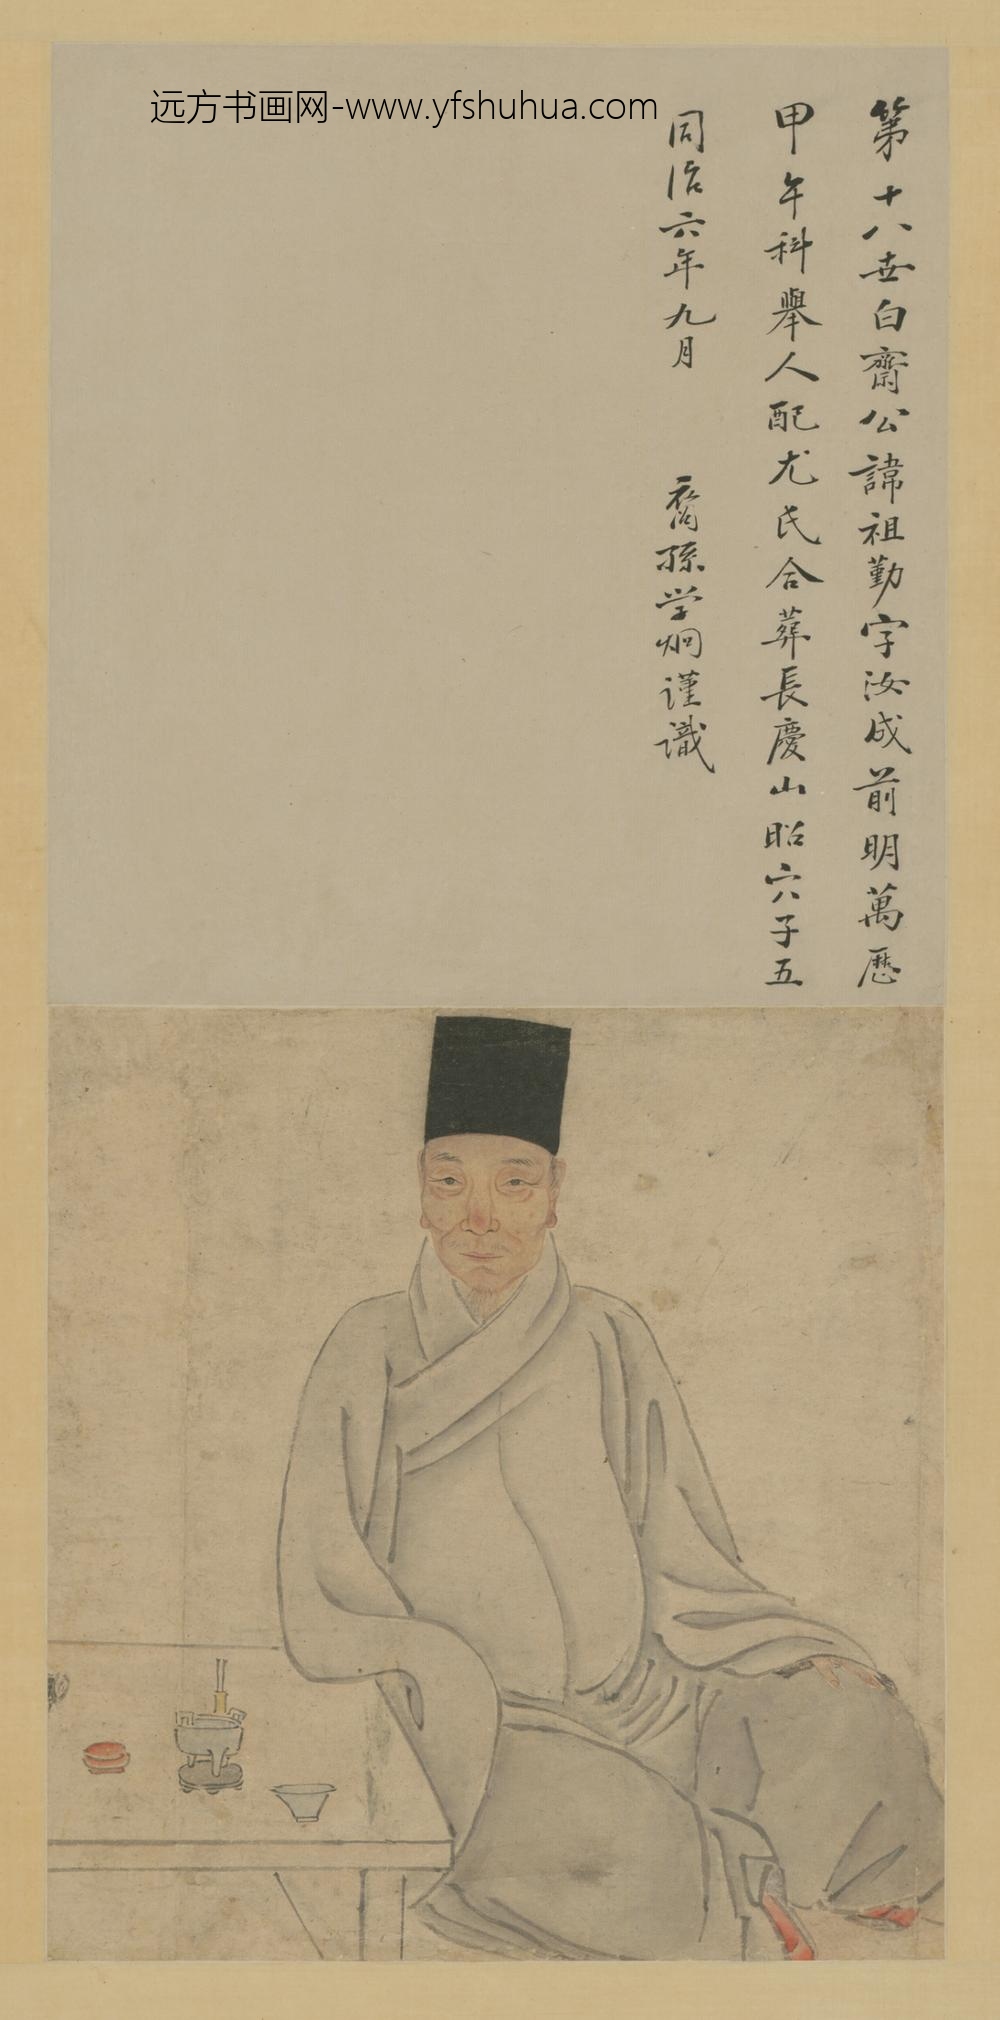 远方书画网-www.yfshuhua.com
第十八世白齋公諱祖勤字汝成前明萬歷
甲午科舉人配尤氏合葬長慶山昭穴子五
同治六年九月 裔孫学炯謹識